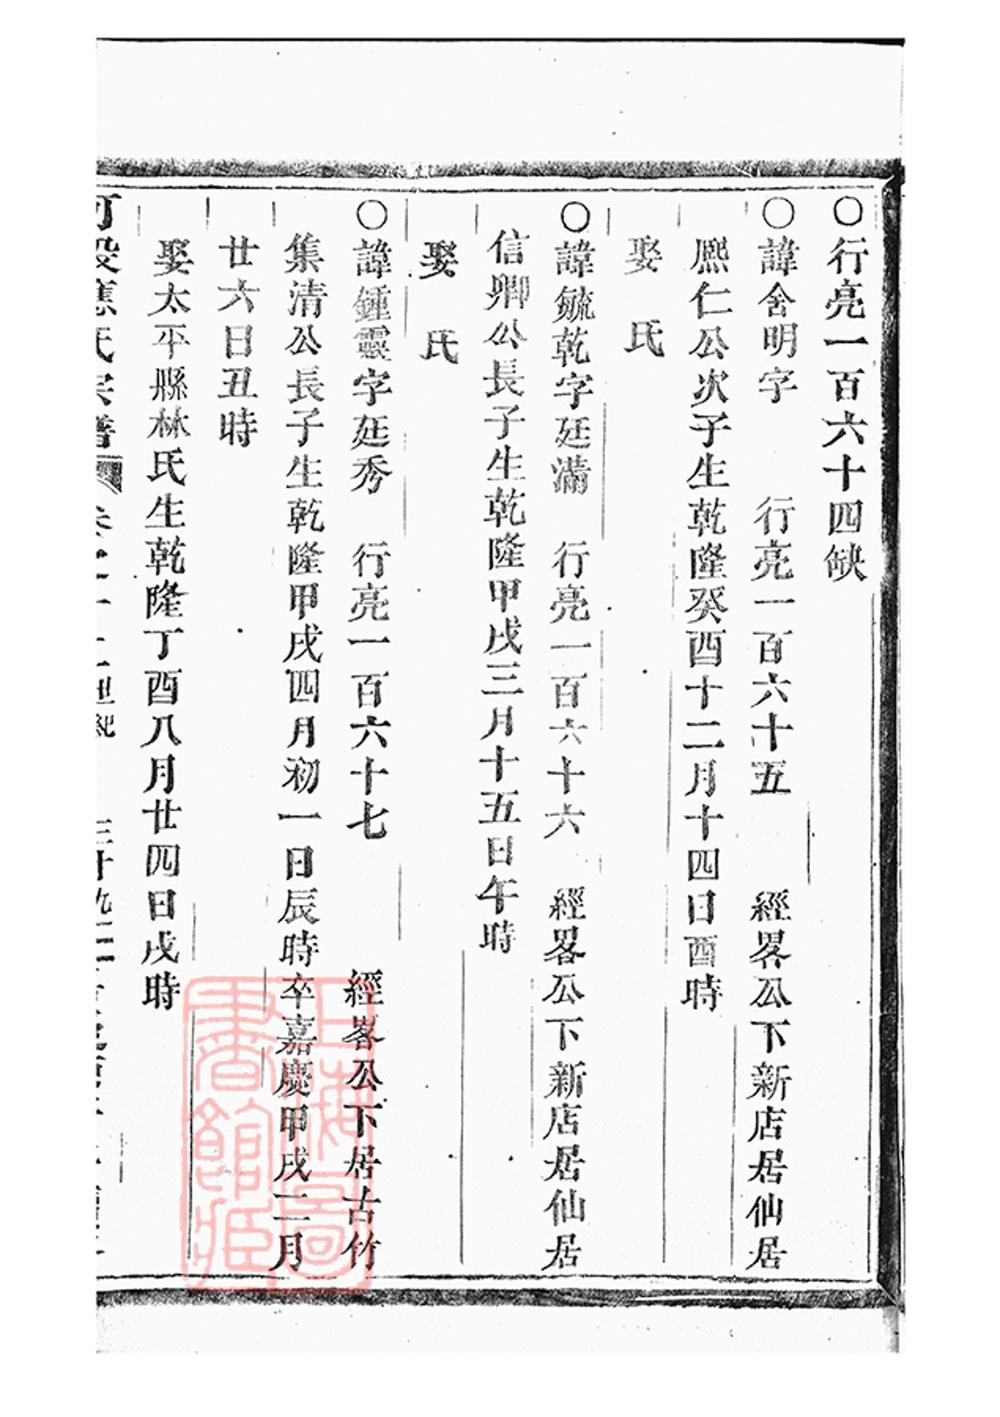 ○行亮一百六十四缺
○諱舍明字　行亮一百六十五　經畧公下新店居仙居
熈仁公次子生乾隆癸酉十二月十四日酉時
娶　氏
○諱毓乾字廷滿　行亮一百六十六　經畧公下新店居仙居
信卿公長子生乾隆甲戌三月十五日午時
娶　氏
○諱鍾靈字廷秀　行亮一百六十七　經畧公下居古竹
集清公長子生乾隆甲戌四月初一日辰時卒嘉慶甲戌二月
廿六日丑時
娶太平縣林氏生乾隆丁酉八月廿四日戌時
應氏宗譜
上海圖書館藏